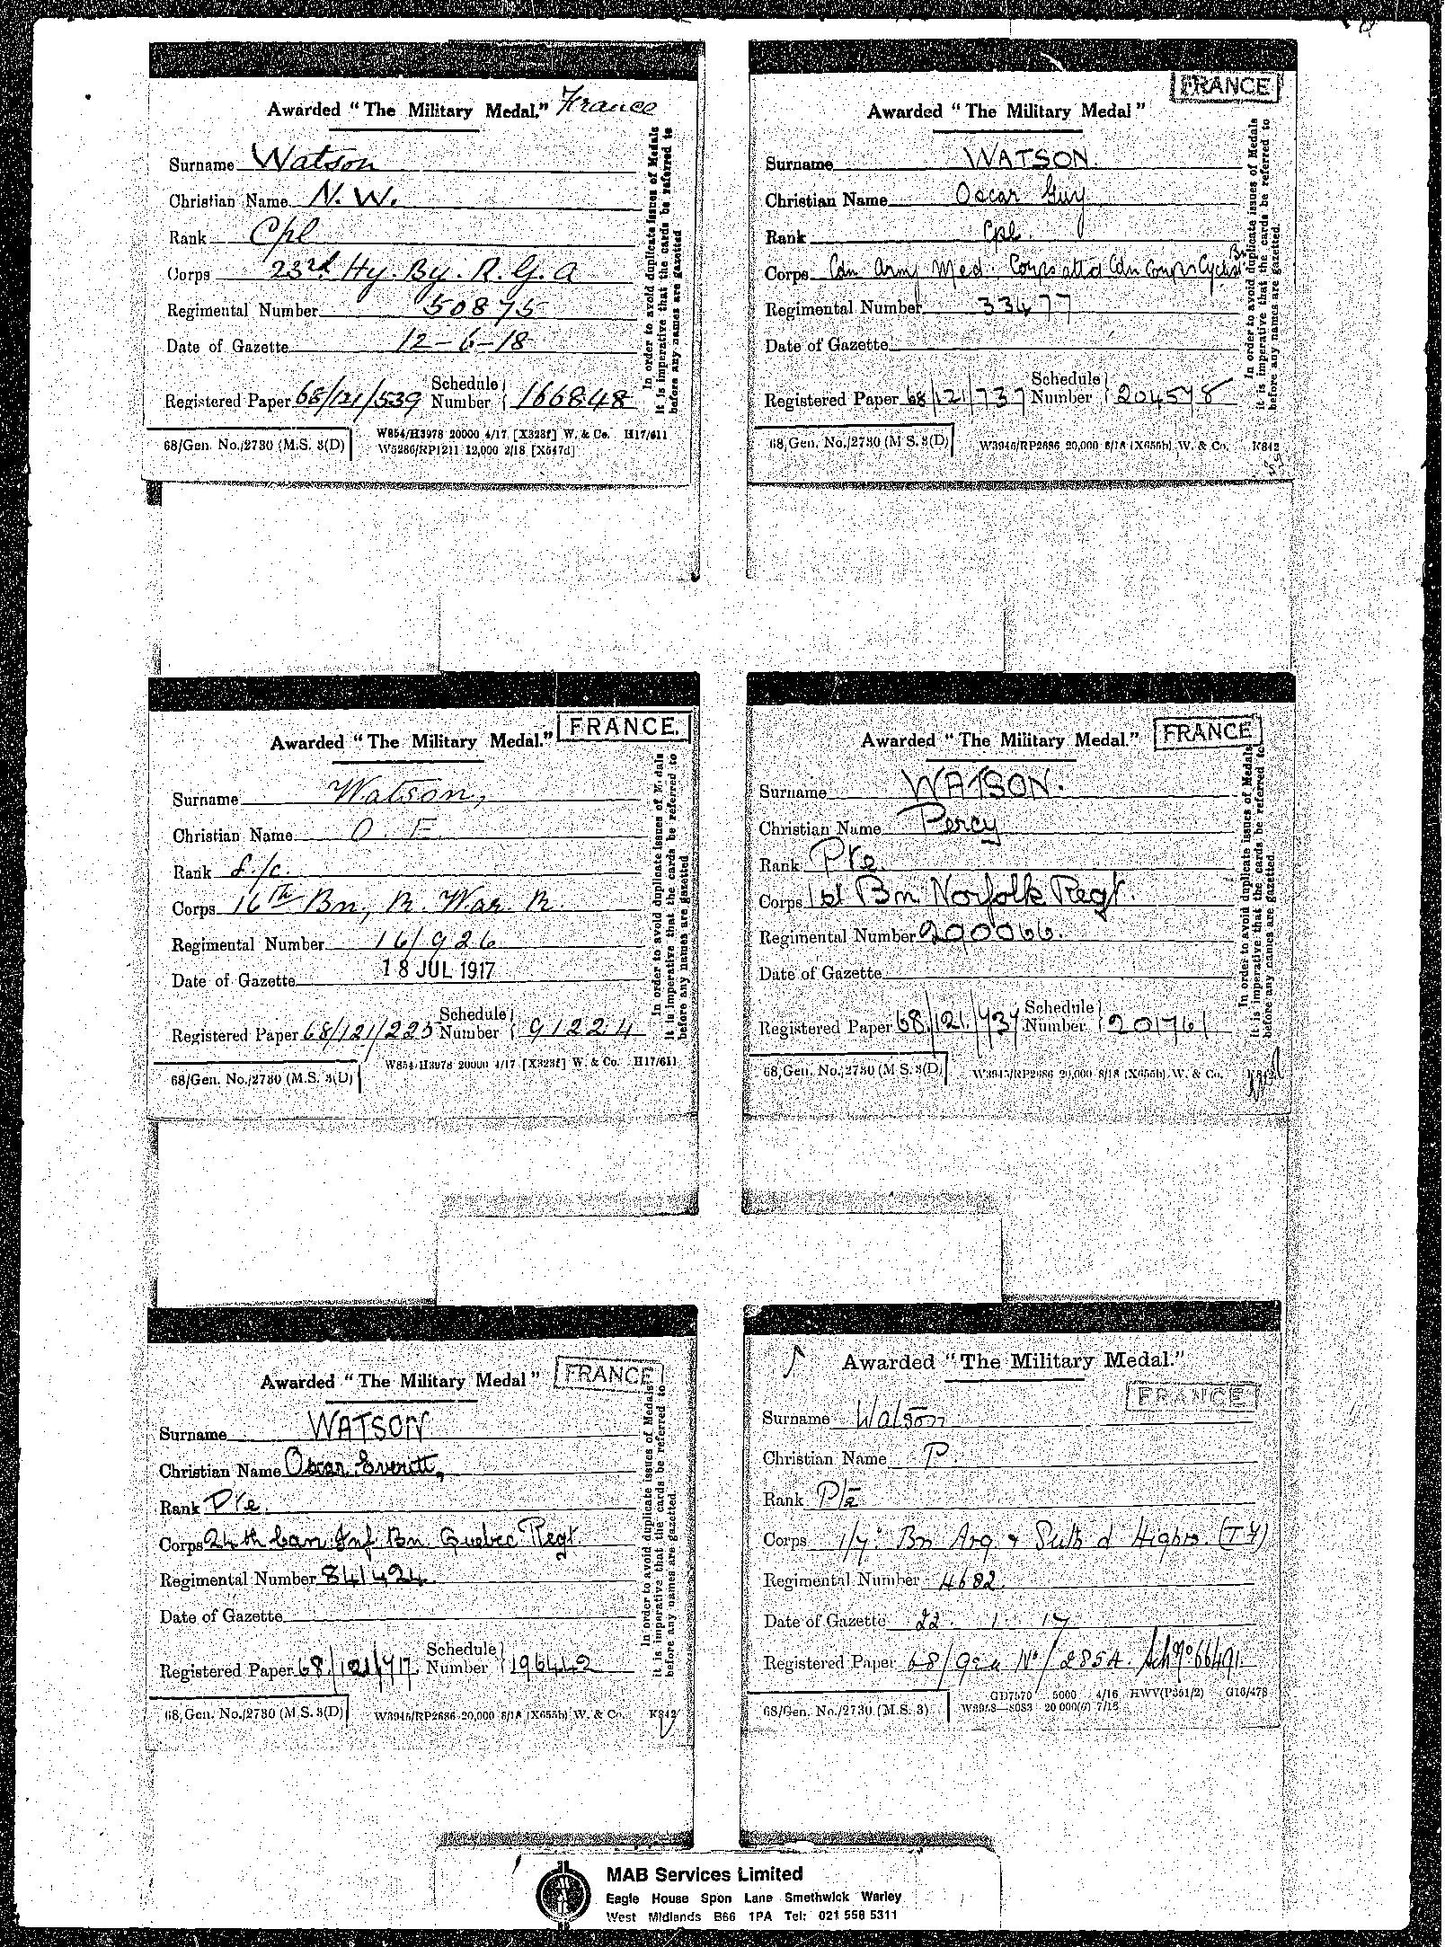 Awarded "The Military Medal." France
Surname Watson
Christian Name N. W.
Rank Cpl
Corps 23rd Hy. By. R. G. A
Regimental Number 50875
Date of Gazette 12-6-18
Registered Paper 68/121/539 Schedule Number 166848
In order to avoid duplicate issues of Medals
it is imperative that the cards be referred to
before any names are gazetted
68/Gen. No./2730 (M.S. 3(D)
W854/H3978 20000 4/17 [X323f] W. & Co. H17/611
W5286/RP1211 12,000 2/18 [X547d]
FRANCE
Awarded "The Military Medal"
Surname WATSON.
Christian Name Oscar Guy
Rank Cpl.
Corps Cdn Army Med. Corps att'd Cdn Corps Cyclist Bn
Regimental Number 33477
Date of Gazette
Registered Paper 68/121/737 Schedule Number 204578
In order to avoid duplicate issues of Medals
it is imperative that the cards be referred to
before any names are gazetted.
68/Gen. No./2730 (M.S. 3(D)
W3946/RP2686 20,000 8/18 (X655b) W. & Co. K842
FRANCE.
Awarded "The Military Medal."
Surname Watson,
Christian Name O. E
Rank L./c.
Corps 16th Bn, R. War. R.
Regimental Number 16/926
Date of Gazette 18 JUL 1917
Registered Paper 68/121/225 Schedule Number 91224
In order to avoid duplicate issues of Medals
it is imperative that the cards be referred to
before any names are gazetted
68/Gen. No./2730 (M.S. 3(D)
W854/H3978 20000 4/17 [X323f] W. & Co. H17/611
FRANCE
Awarded "The Military Medal."
Surname WATSON.
Christian Name Percy
Rank Pte
Corps 1st Bn Norfolk Regt.
Regimental Number 290066.
Date of Gazette
Registered Paper 68/121/737 Schedule Number 201761
In order to avoid duplicate issues of Medals
it is imperative that the cards be referred to
before any names are gazetted.
68/Gen. No./2730 (M.S. 3(D)
W3945/RP2686 20,000 8/18 (X655b) W. & Co. K842
FRANCE
Awarded "The Military Medal"
Surname WATSON
Christian Name Oscar Everett,
Rank Pte.
Corps 24th Can. Inf. Bn. Quebec Regt.
Regimental Number 841424
Date of Gazette
Registered Paper 68/121/717. Schedule Number 196442
In order to avoid duplicate issues of Medals
it is imperative that the cards be referred to
before any names are gazetted.
68/Gen. No./2730 (M.S. 3(D)
W3946/RP2686 20,000 8/18 (X655b) W. & Co. K842
Awarded "The Military Medal."
FRANCE
Surname Watson
Christian Name P.
Rank Pte
Corps 1/7. Bn Arg. & Suth'd Highrs. (TF)
Regimental Number 4682
Date of Gazette 22. 1. 17
Registered Paper 68/Gen No/2854. Sch No 66491.
68/Gen. No./2730 (M.S. 3)
GD7570 5000 4/16 HWV(P351/2) G16/478
20 000(6) 7/16
MAB Services Limited
Eagle House Spon Lane Smethwick Warley
West Midlands B66 1PA Tel: 021 558 5311